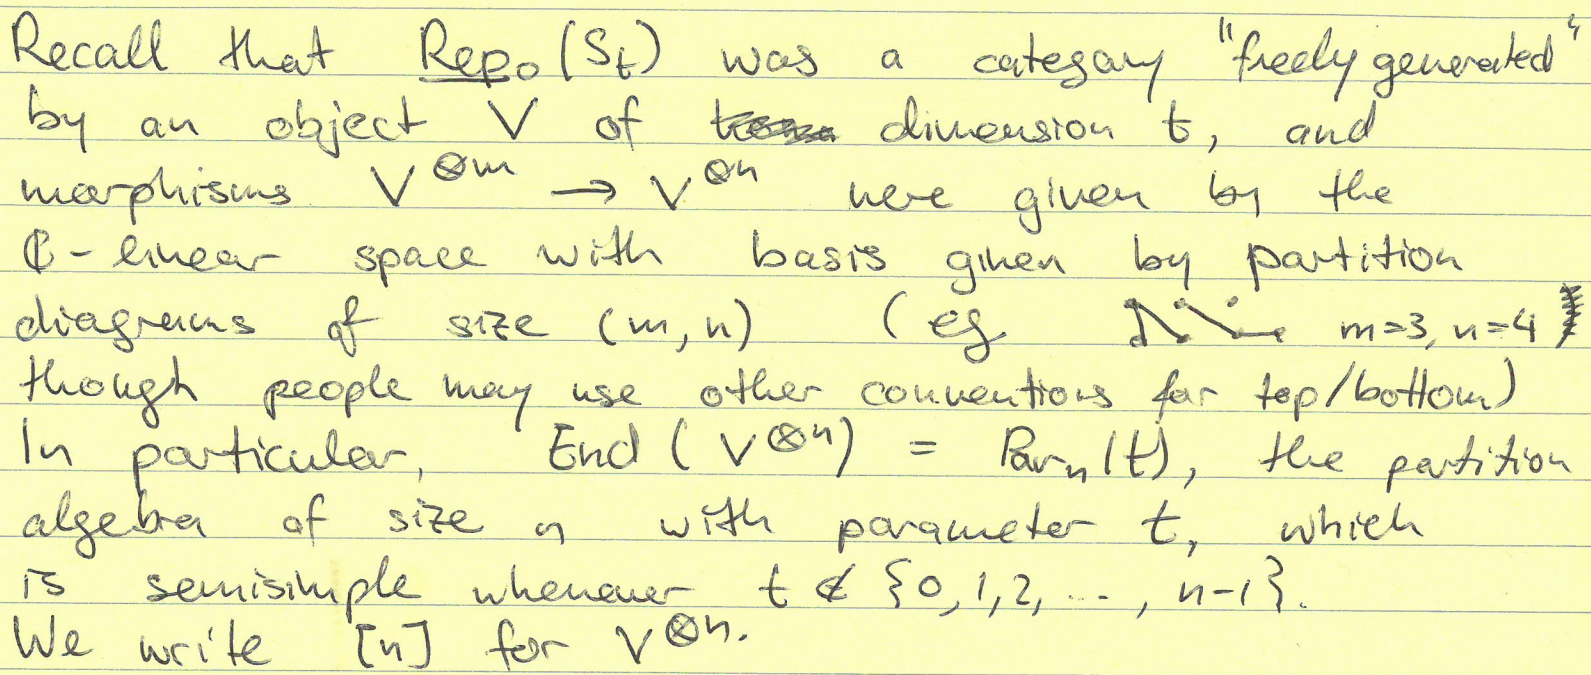 Recall that Rep₀(Sₜ) was a category "freely generated"
by an object V of dimension t, and
morphisms V^⊗m → V^⊗n were given by the
ℂ-linear space with basis given by partition
diagrams of size (m,n) (eg m=3, n=4
though people may use other conventions for top/bottom)
In particular, End(V^⊗n) = Parₙ(t), the partition
algebra of size n with parameter t, which
is semisimple whenever t ∉ {0,1,2, ..., n-1}.
We write [n] for V^⊗n.